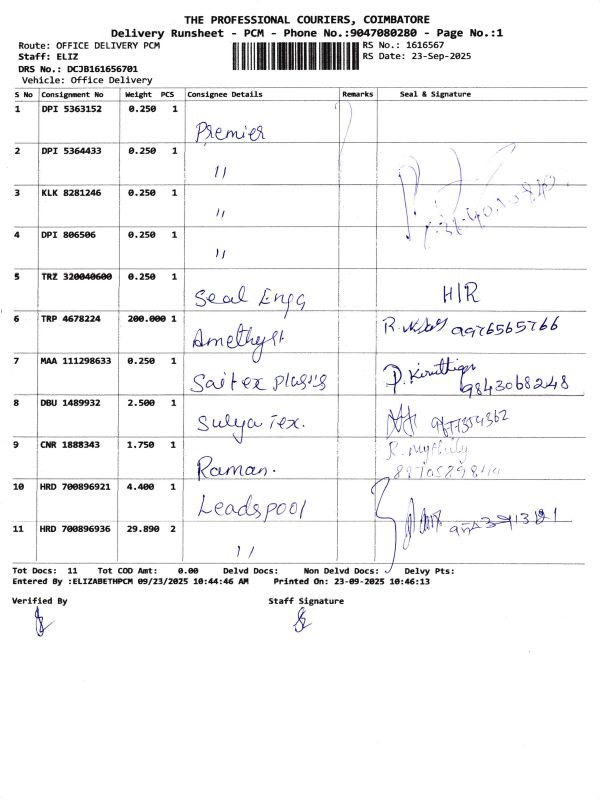 THE PROFESSIONAL COURIERS, COIMBATORE
Delivery Runsheet - PCM - Phone No.:9047080280 - Page No.:1
Route: OFFICE DELIVERY PCM RS No.: 1616567
Staff: ELIZ RS Date: 23-Sep-2025
DRS No.: DCJB161656701
Vehicle: Office Delivery
S No Consignment No Weight PCS Consignee Details Remarks Seal & Signature
1 DPI 5363152 0.250 1 Premier
2 DPI 5364433 0.250 1 11
3 KLK 8281246 0.250 1 11
4 DPI 806506 0.250 1 11
5 TRZ 320040600 0.250 1 Seal Engg H/R
6 TRP 4678224 200.000 1 Amethyst R. 9976565766
7 MAA 111298633 0.250 1 Saitex Plastis P. 9843068248
8 DBU 1489932 2.500 1 Sulya Tex.
9 CNR 1888343 1.750 1 Raman. R.
10 HRD 700896921 4.400 1 Leadspool
11 HRD 700896936 29.890 2 11
Tot Docs: 11 Tot COD Amt: 0.00 Delvd Docs: Non Delvd Docs: Delvy Pts:
Entered By :ELIZABETHPCM 09/23/2025 10:44:46 AM Printed On: 23-09-2025 10:46:13
Verified By Staff Signature